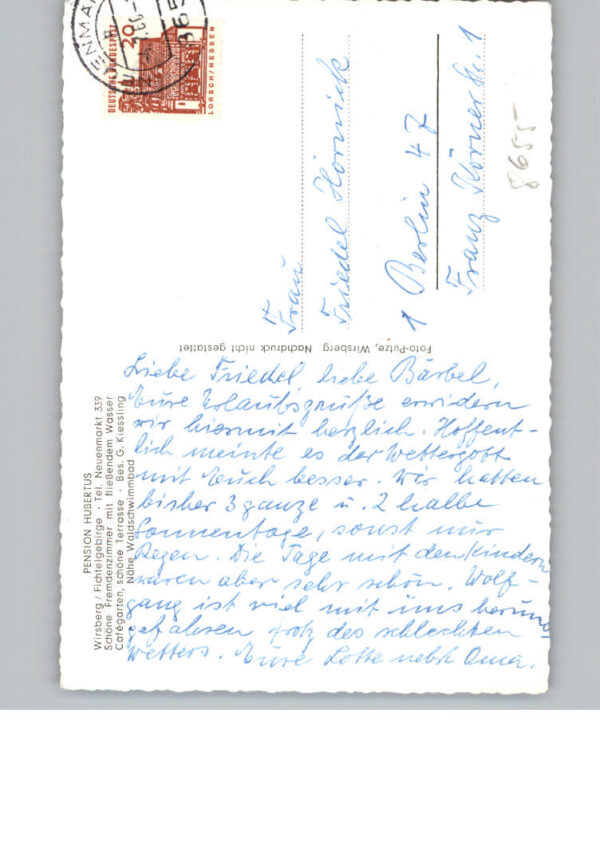 DEUTSCHE BUNDESPOST
20
LORSCH/HESSEN
865
Frau
Friedel Hornick
1 Berlin 47
Franz Körner Str. 1
8655
Foto-Putze, Wirsberg Nachdruck nicht gestattet
PENSION HUBERTUS
Wirsberg / Fichtelgebirge · Tel. Neuenmarkt 339
Schöne Fremdenzimmer mit fließendem Wasser
Cafégarten, schöne Terrasse · Bes. G. Kiessling
Nähe Waldschwimmbad
Liebe Friedel, liebe Bärbel,
Eure Urlaubsgrüße erwidern
wir hiermit herzlich. Hoffent-
lich meinte es der Wettergott
mit Euch besser. Wir hatten
bisher 3 ganze u. 2 halbe
Sonnentage, sonst nur
Regen. Die Tage mit den Kindern
waren aber sehr schön. Wolf-
gang ist viel mit uns herum
gefahren trotz des schlechten
Wetters. Eure Lotte nebst Oma.